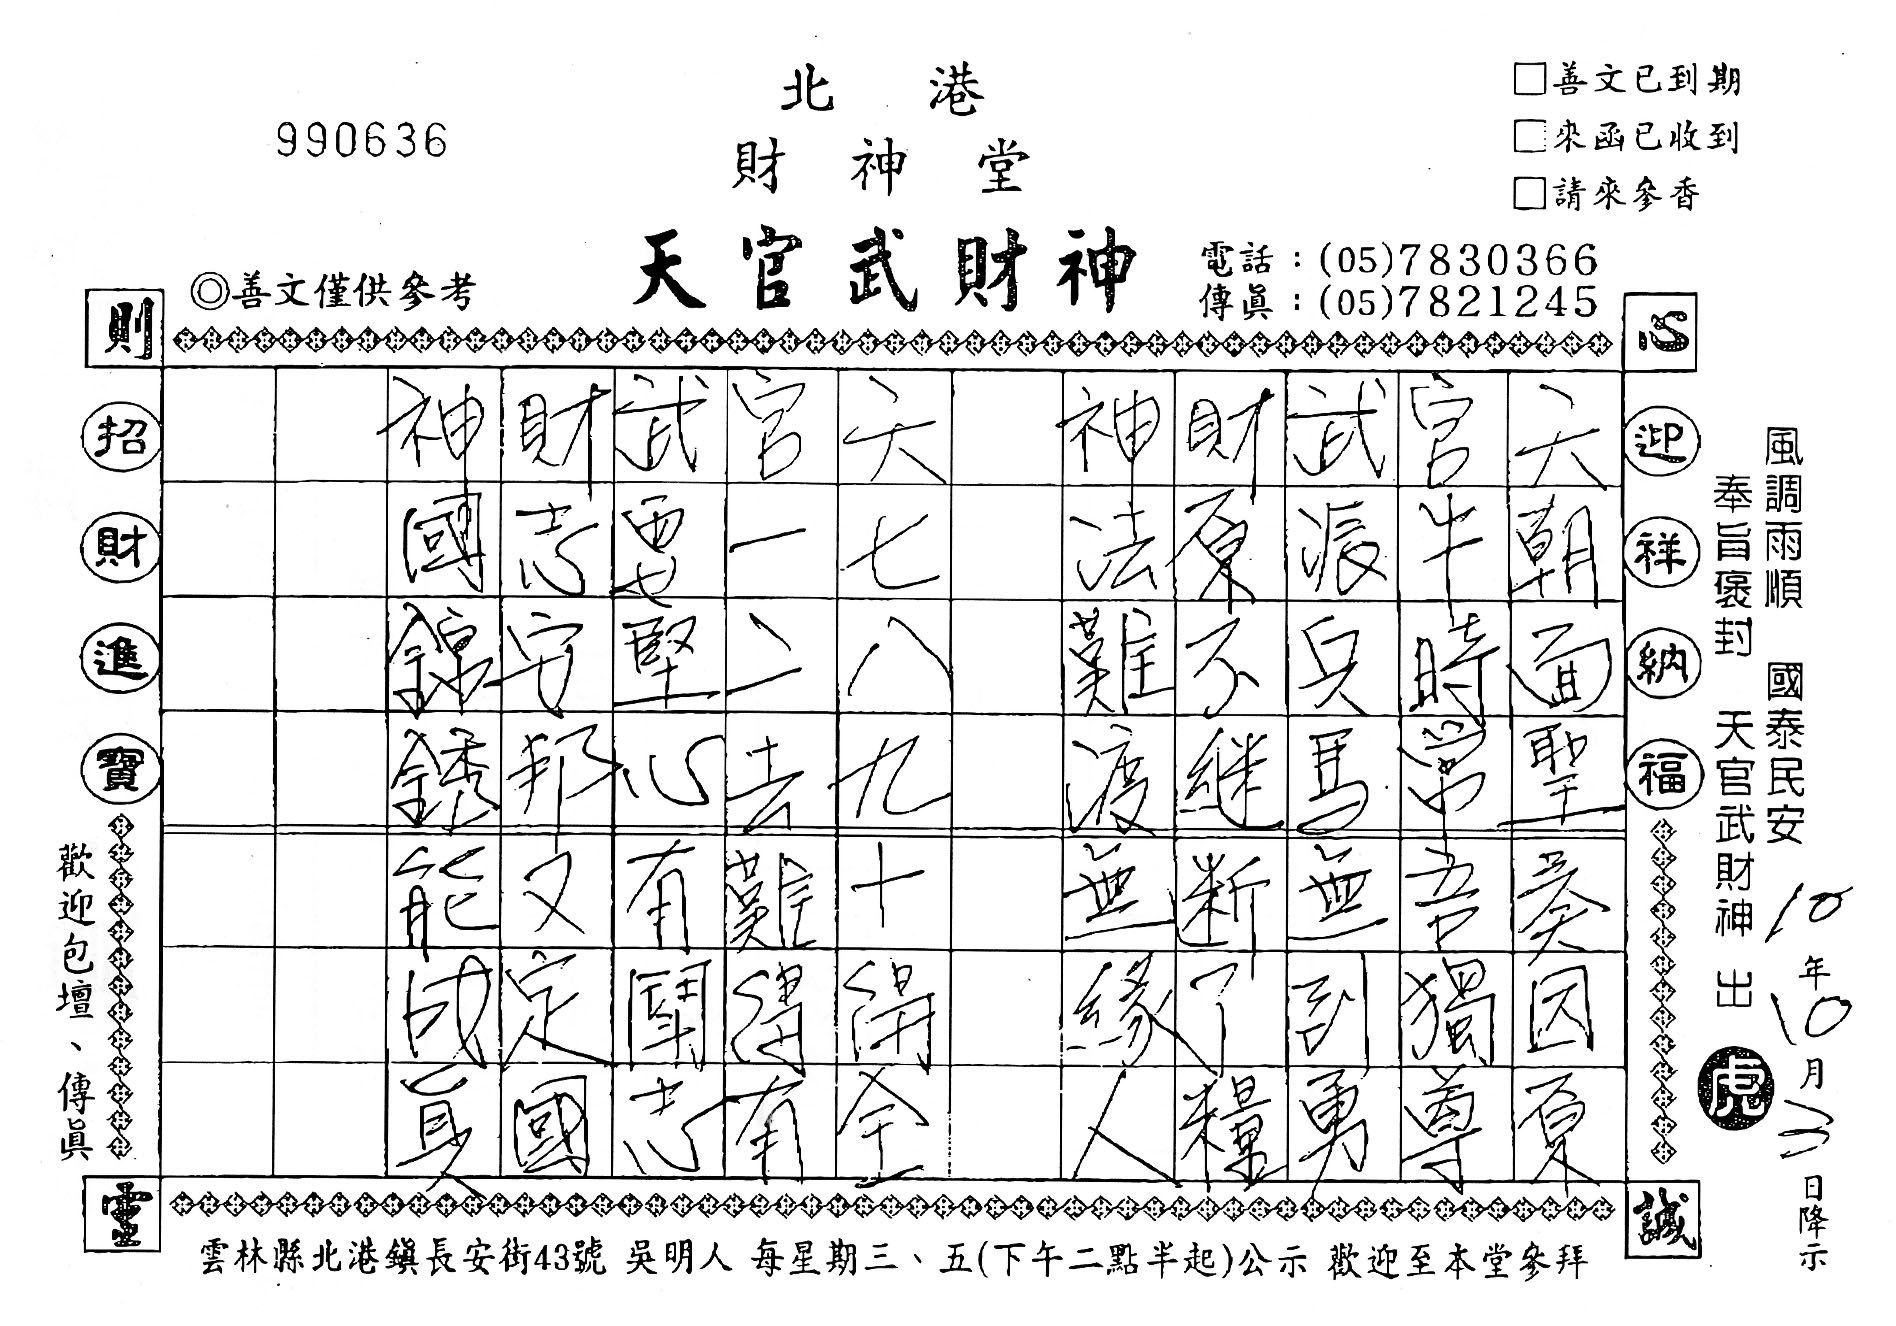 北港
財神堂
天官武財神
990636
◎善文僅供參考
□善文已到期
□來函已收到
□請來參香
電話：(05)7830366
傳眞：(05)7821245
則
心
靈
誠
迎祥納福
招財進寶
風調雨順 國泰民安
奉旨褒封 天官武財神 出
虎
10年10月 日降示
六朝面聖 因夏
官牛時當吾獨尊
武派兵馬無到勇
財夏不継断了糧
神法難渡無緣人
六七八九十得全
官一二去難得有
武要堅心有鬪志
財志安邦又定國
神國錦銹能成真
歡迎包壇、傳眞
雲林縣北港鎮長安街43號 吳明人 每星期三、五(下午二點半起)公示 歡迎至本堂參拜